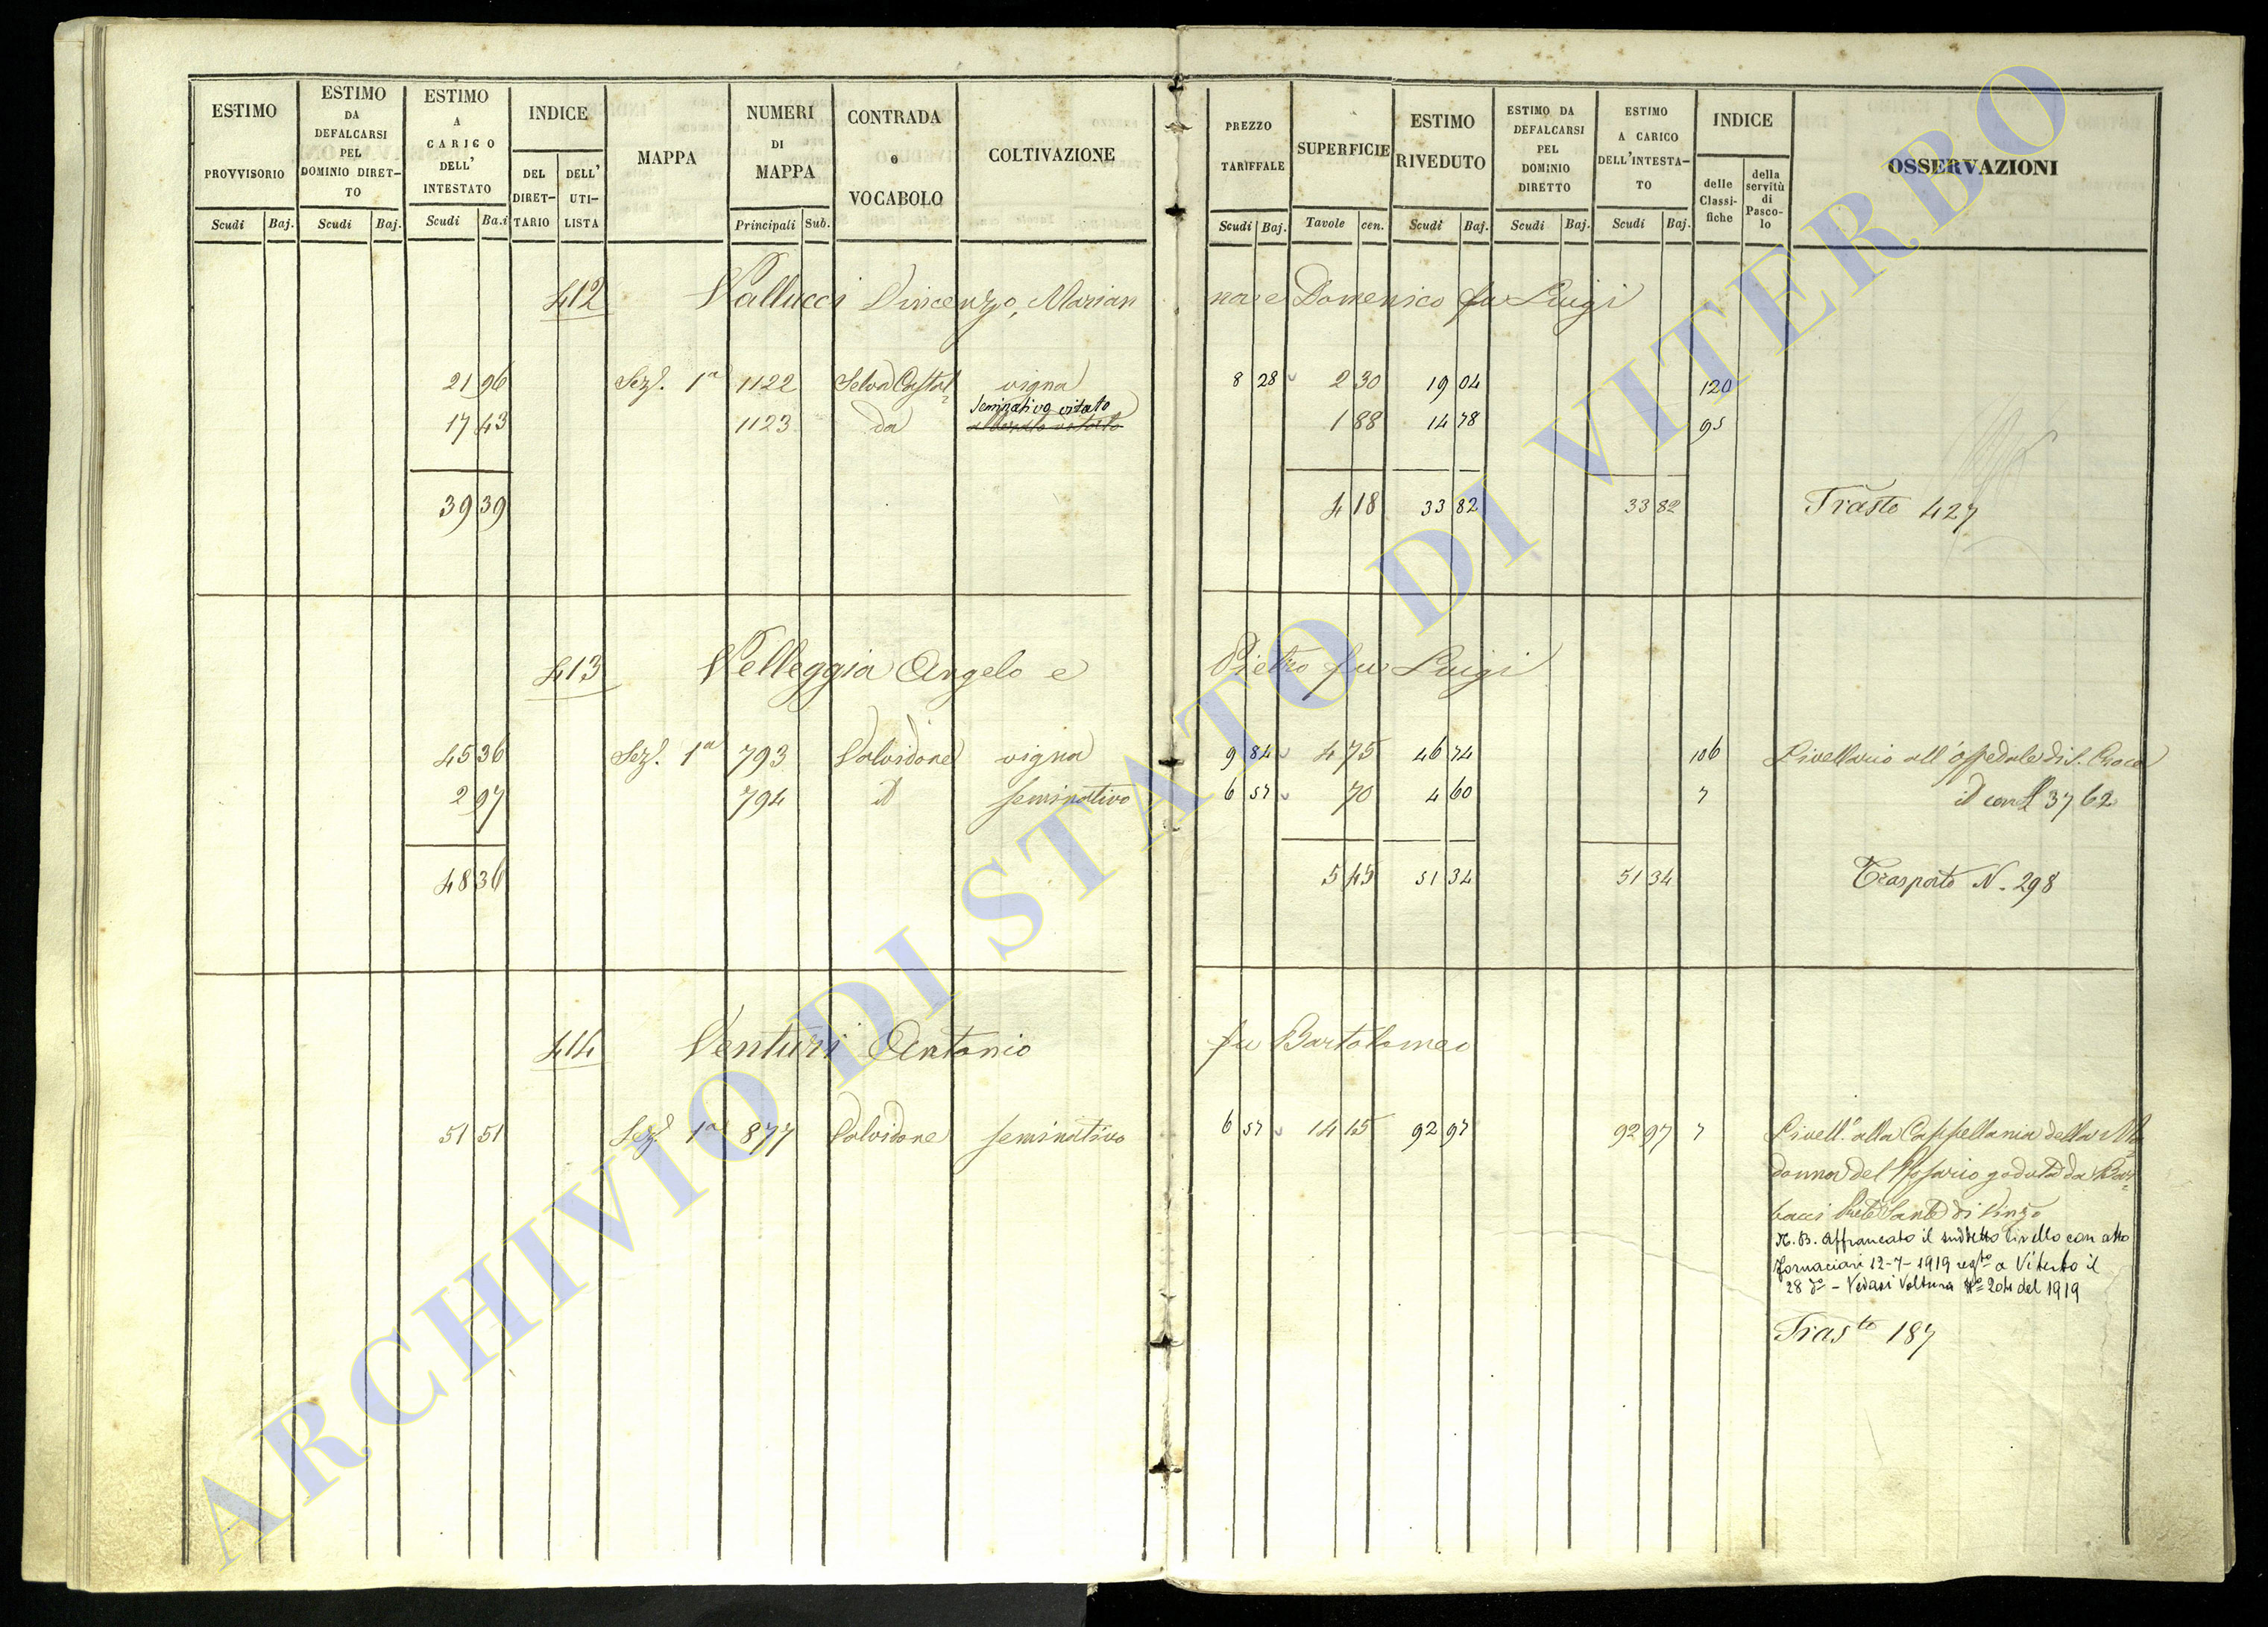 ESTIMO PROVVISORIO Scudi Baj.
ESTIMO DA DEFALCARSI PEL DOMINIO DIRET-TO Scudi Baj.
ESTIMO A CARICO DELL' INTESTATO Scudi Ba.i
INDICE DEL DIRET-TARIO DELL' UTI-LISTA
MAPPA
NUMERI DI MAPPA Principali Sub.
CONTRADA o VOCABOLO
COLTIVAZIONE
PREZZO TARIFFALE Scudi Baj.
SUPERFICIE Tavole cen.
ESTIMO RIVEDUTO Scudi Baj.
ESTIMO DA DEFALCARSI PEL DOMINIO DIRETTO Scudi Baj.
ESTIMO A CARICO DELL'INTESTA-TO Scudi Baj.
INDICE delle Classi-fiche della servitù di Pasco-lo
OSSERVAZIONI
412 Vallucci Vincenzo, Marian na e Domenico fu Luigi
21 96 Sez. 1a 1122 Selva Castal= vigna 8 28 2 30 19 04 120
seminativo vitato
17 43 1123 da 1 88 14 78 95
39 39 4 18 33 82 33 82 Trasto 427
413 Velleggia Angelo e Pietro fu Luigi
45 36 Sez. 1a 793 Valvidone vigna 9 84 4 75 46 74 106 Livellario all'ospedale di S. Croce
2 97 794 id seminativo 6 57 70 4 60 7 id con 37 62
48 36 5 45 51 34 51 34 Trasporto N. 298
414 Venturi Antonio fu Bartolomeo
51 51 Sez. 1a 877 Valvidone seminativo 6 57 14 15 92 97 92 97 7 Livell.o alla Cappellania della Ma=
donna del Rosario goduta da Bar=
bacci Prete Sante di Vinzo
N.B. Affrancato il suddetto livello con atto
Fornaciari 12-7-1919 regto a Viterbo il
28 do - Vedasi Voltura No 204 del 1919
Trasto 187
ARCHIVIO DI STATO DI VITERBO